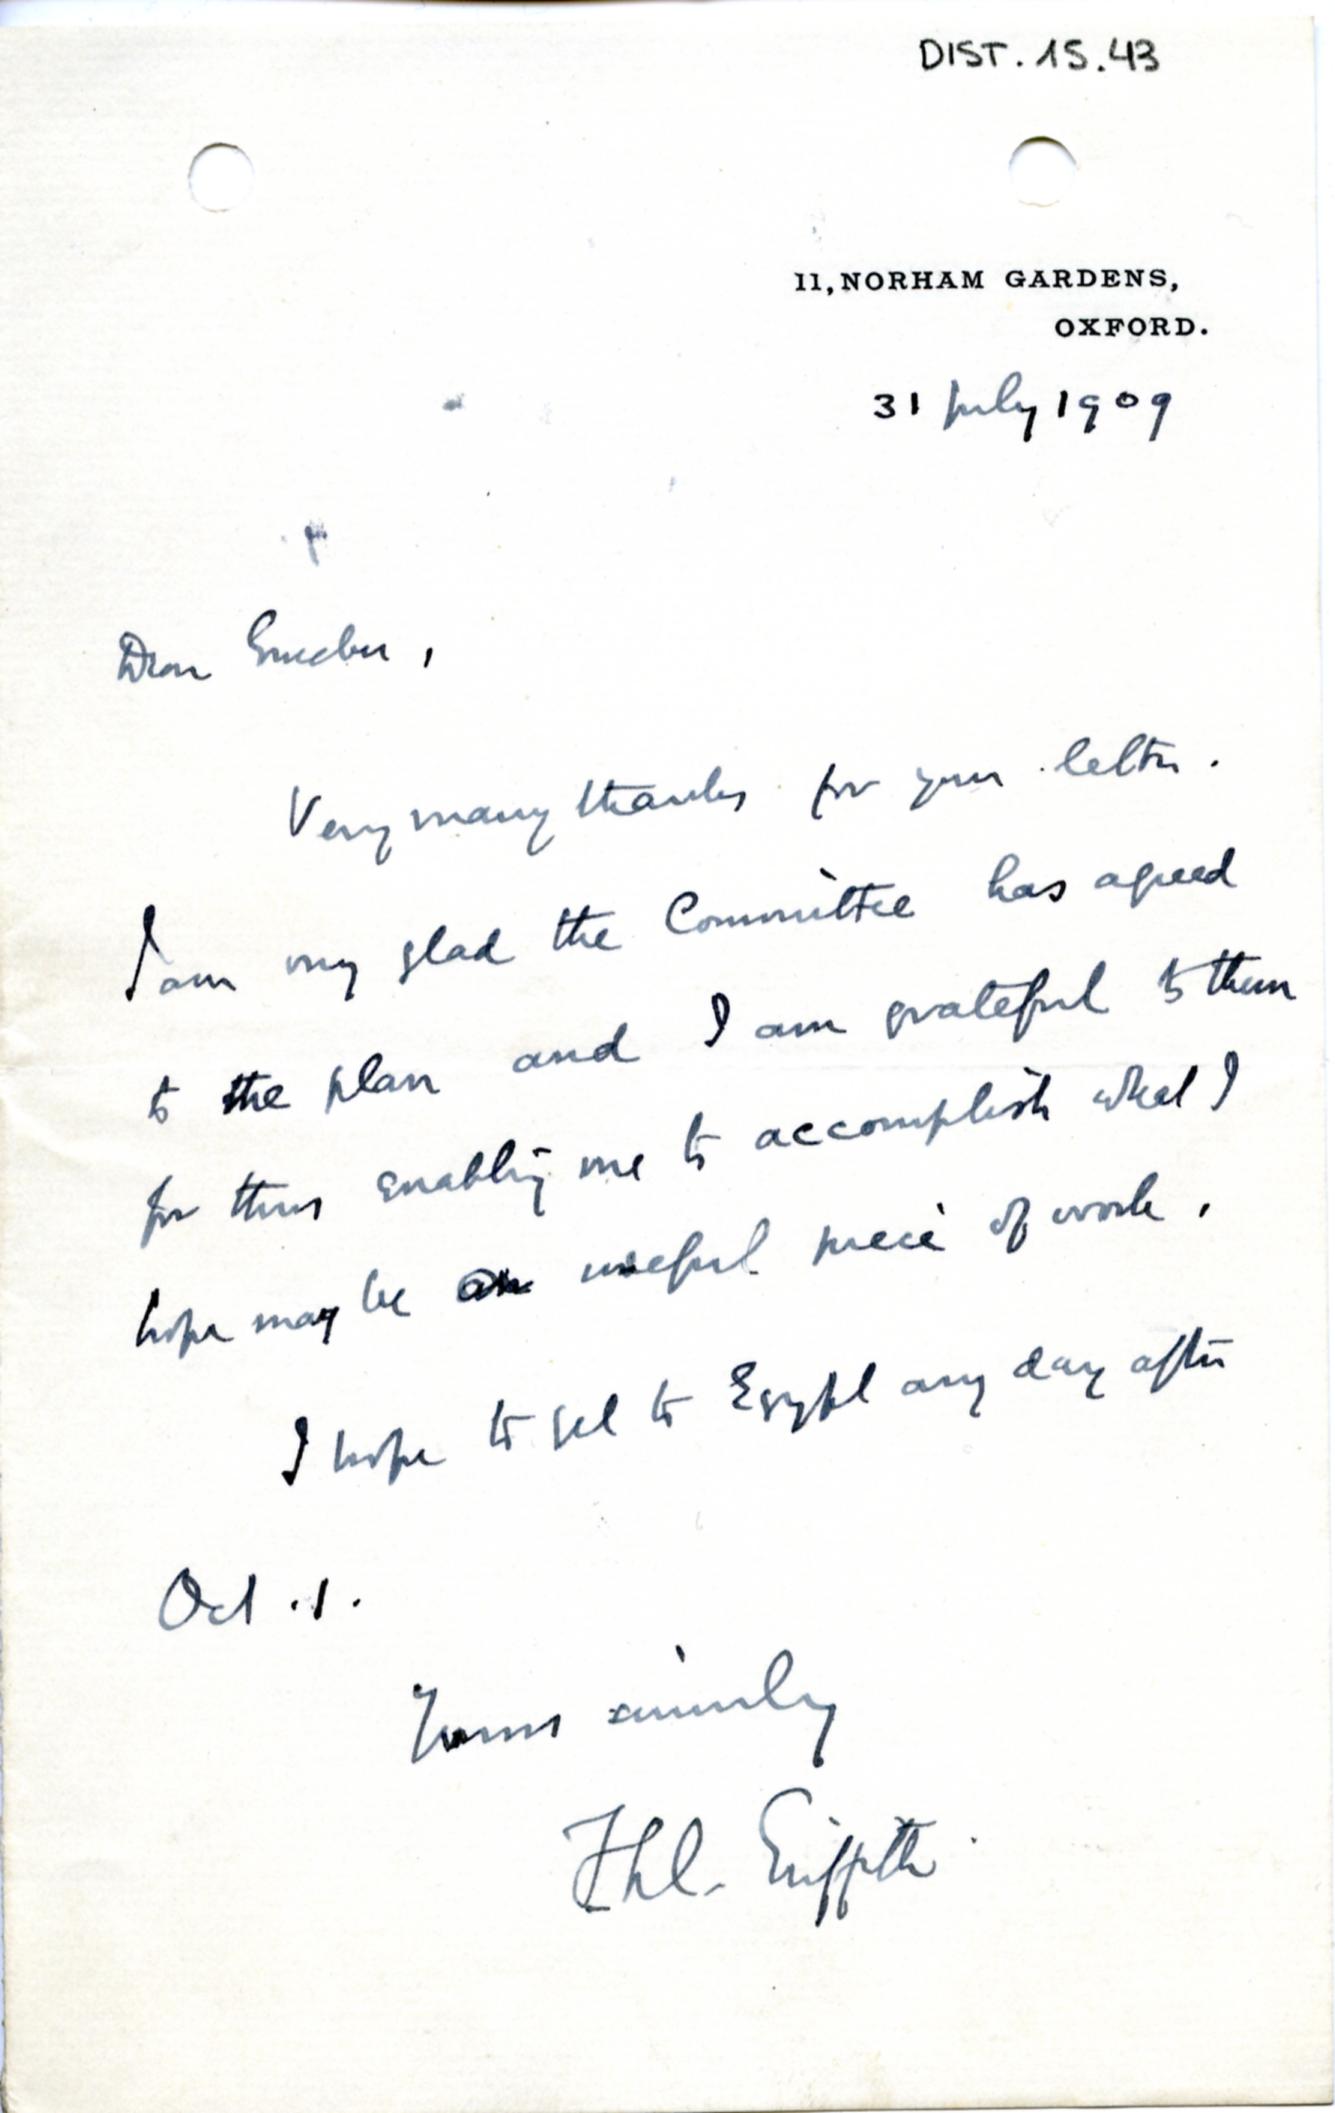 DIST. 15.43
11, NORHAM GARDENS,
OXFORD.
31 July 1909
Dear Grueber,
Very many thanks for your letter.
I am very glad the Committee has agreed
to the plan and I am grateful to them
for thus enabling me to accomplish what I
hope may be a useful piece of work.
I hope to get to Egypt any day after
Oct. 1.
Yours sincerely
F Ll. Griffith